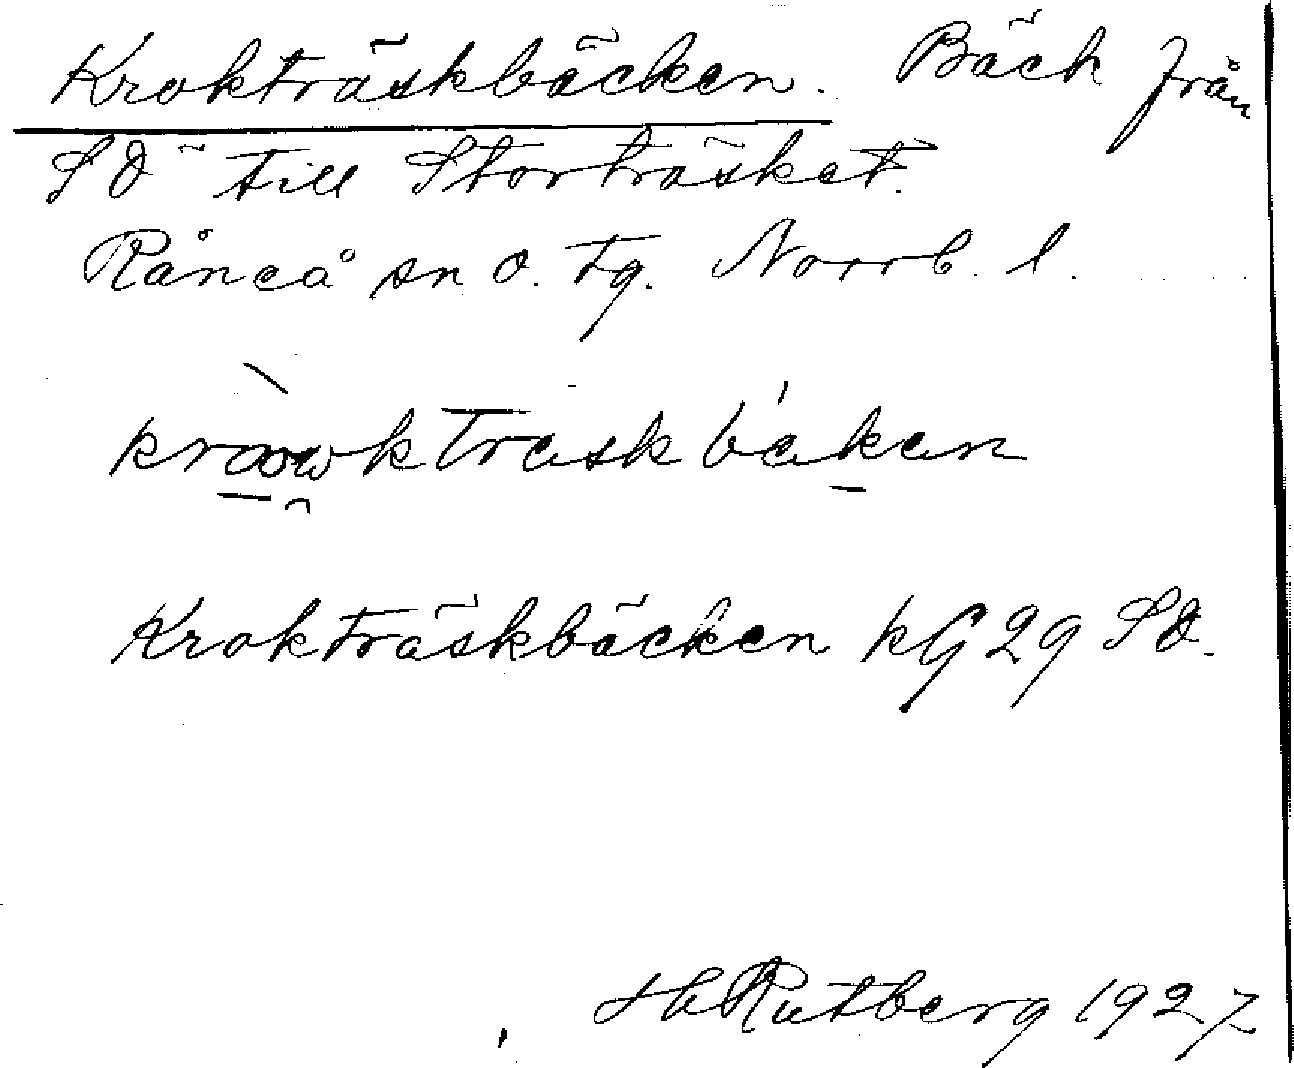 Krokträskbäcken. Bäck från
SÖ till Storträsket.
Råneå sn o. tg. Norrb. l.
kròowktraskbákan
Krokträskbäcken kG29 SO.
H Rutberg 1927